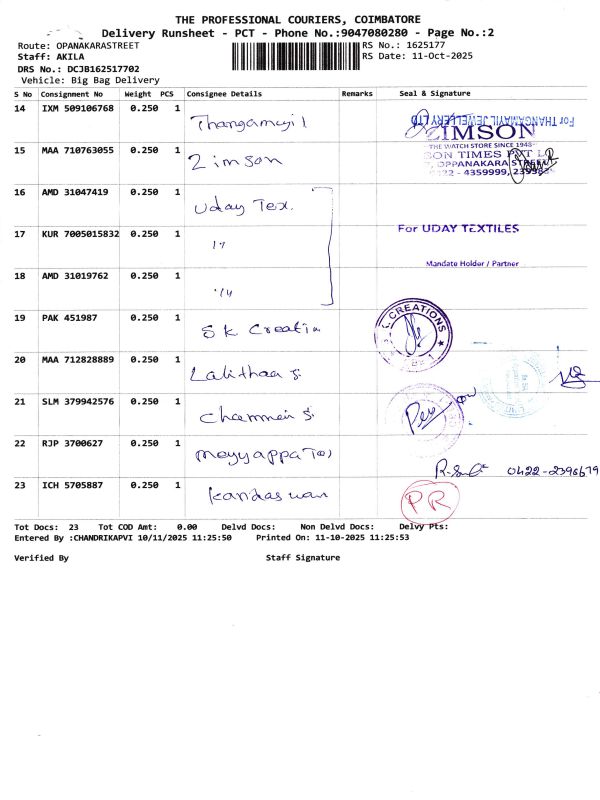 THE PROFESSIONAL COURIERS, COIMBATORE
Delivery Runsheet - PCT - Phone No.:9047080280 - Page No.:2
Route: OPANAKARASTREET
RS No.: 1625177
Staff: AKILA
RS Date: 11-Oct-2025
DRS No.: DCJB162517702
Vehicle: Big Bag Delivery
S No Consignment No Weight PCS Consignee Details Remarks Seal & Signature
14 IXM 509106768 0.250 1 Thangamayil
For THANGAMAYIL JEWELLERY LTD
ZIMSON
THE WATCH STORE SINCE 1948
15 MAA 710763055 0.250 1 Zimson
SON TIMES PVT L
OPPANAKARA STREET
0422 - 4359999,
16 AMD 31047419 0.250 1 Uday Tex.
17 KUR 7005015832 0.250 1 "
For UDAY TEXTILES
Mandate Holder / Partner
18 AMD 31019762 0.250 1 "
19 PAK 451987 0.250 1 SK Creatin
CREATIONS
20 MAA 712828889 0.250 1 Lalithaa S.
21 SLM 379942576 0.250 1 Chennnei S.
22 RJP 3700627 0.250 1 Meyyappa Tex
0422-2396679
23 ICH 5705887 0.250 1 Kandaswan
PR
Tot Docs: 23 Tot COD Amt: 0.00 Delvd Docs: Non Delvd Docs: Delvy Pts:
Entered By :CHANDRIKAPVI 10/11/2025 11:25:50 Printed On: 11-10-2025 11:25:53
Verified By Staff Signature